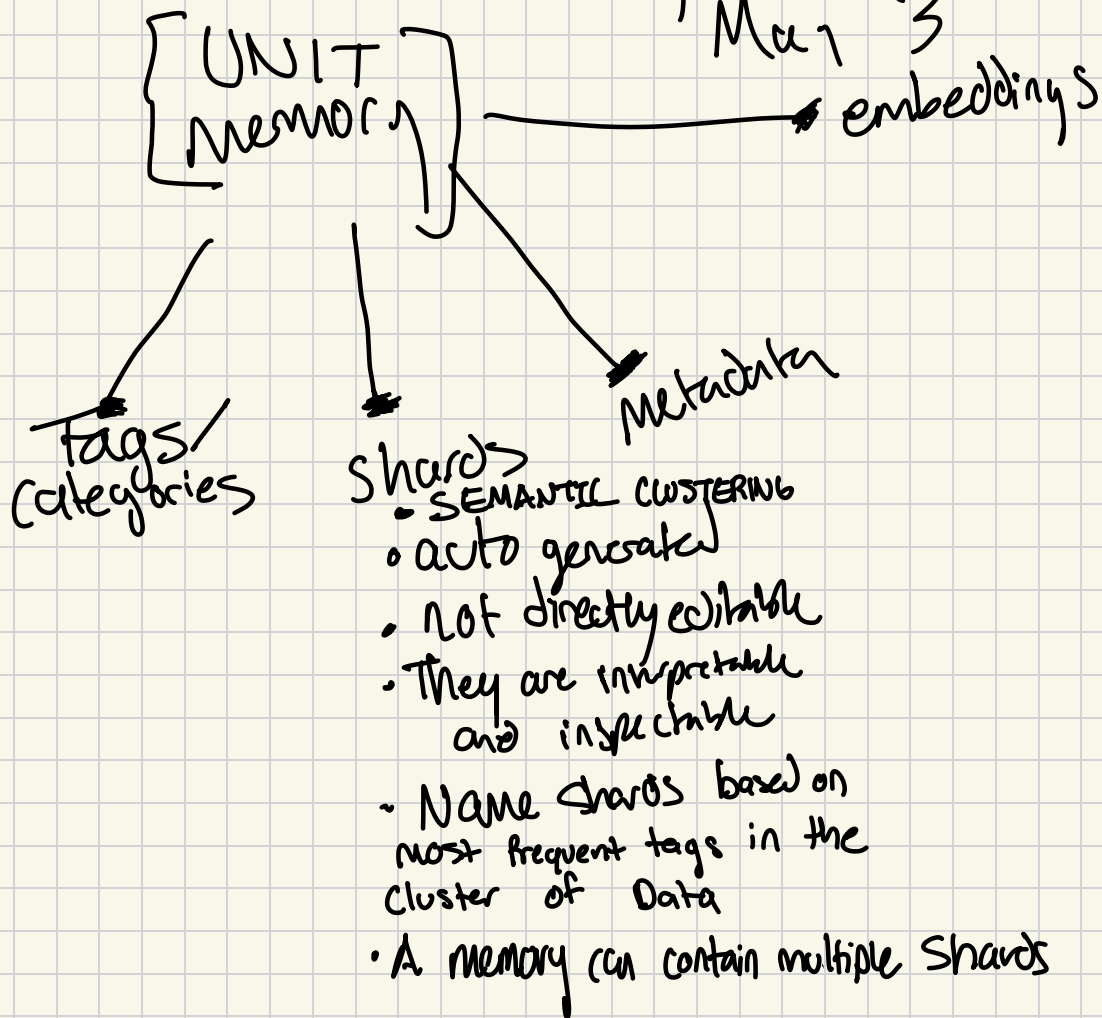 May 3
UNIT
memory
embeddings
Metadata
Tags/
Categories
Shards
• SEMANTIC CLUSTERING
• auto generated
• not directly editable
• They are interpretable
and inspectable
- Name shards based on
most frequent tags in the
cluster of Data
• A memory can contain multiple Shards